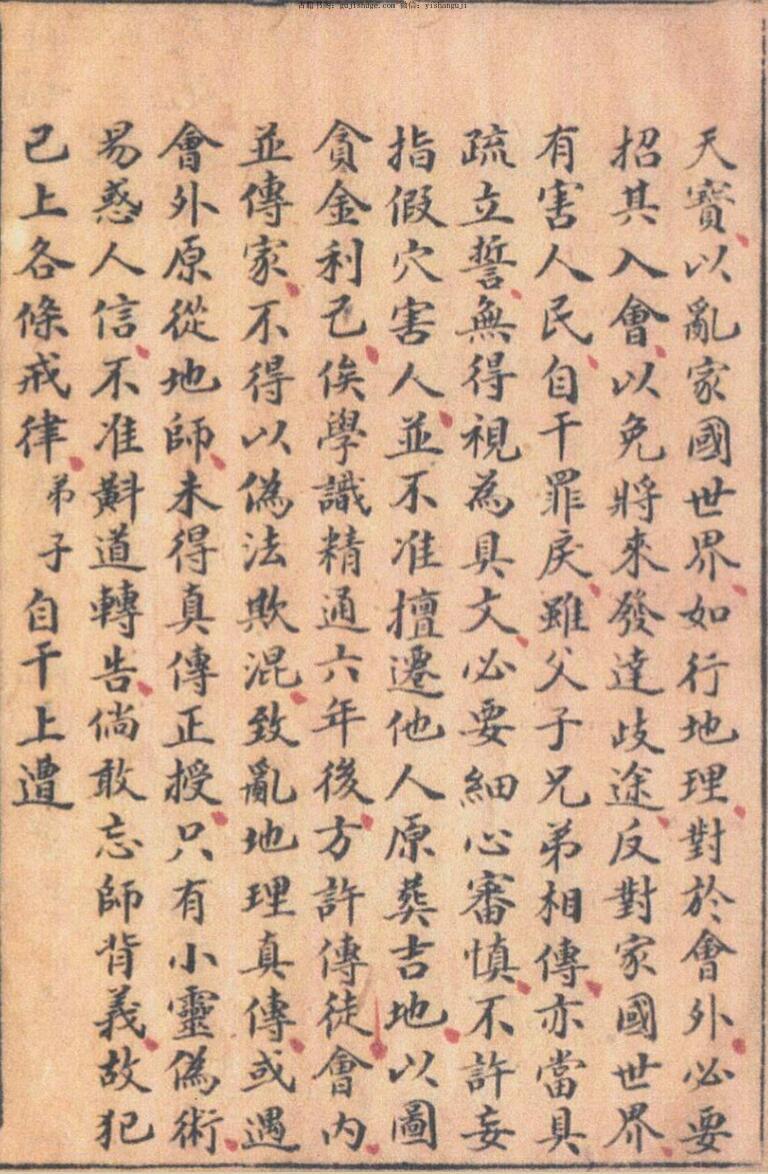 古籍书阁：gujishuge.com 微信：yishanguji
天寶以亂家國世界如行地理對於會外必要
招其入會以免將來發達歧途反對家國世界
有害人民自干罪戾雖父子兄弟相傳亦當具
疏立誓無得視為具文必要細心審慎不許妄
指假穴害人並不准擅遷他人原葬吉地以圖
貪金利己俟學識精通六年後方許傳徒會內
並傳家不得以偽法欺混致亂地理真傳或遇
會外原從地師未得真傳正授只有小靈偽術
易惑人信不准斟道轉告倘敢忘師背義故犯
已上各條戒律弟子自干上遭